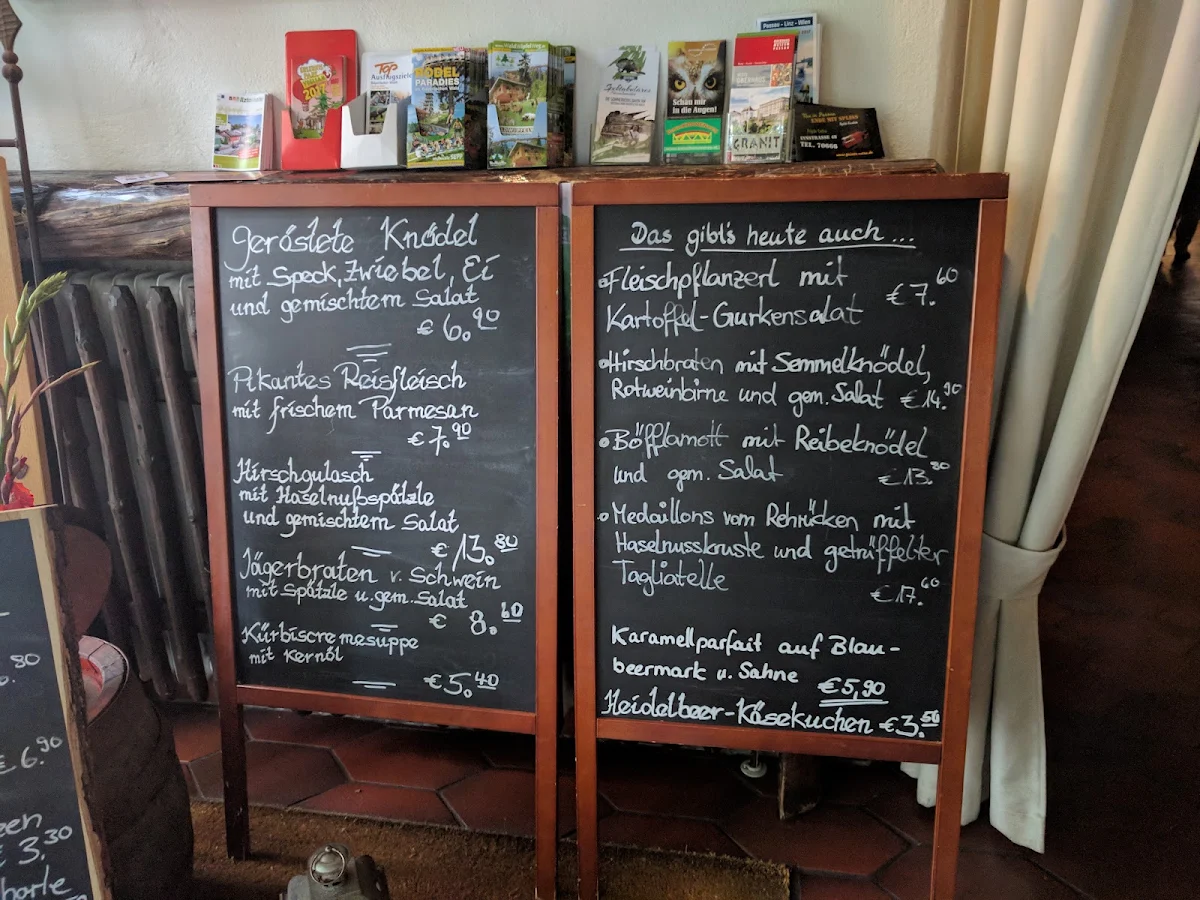 Passau - Linz - Wien
TOP
Ausflugsziele
PARADIES
Schau mir
in die Augen!
GRANIT
TEL. 70668
geröstete Knödel
mit Speck, Zwiebel, Ei
und gemischtem Salat
€ 6.90
Pikantes Reisfleisch
mit frischem Parmesan
€ 7.90
Hirschgulasch
mit Haselnußspätzle
und gemischtem Salat
€ 13.80
Jägerbraten v. Schwein
mit Spätzle u. gem. Salat
€ 8.60
Kürbiscremesuppe
mit Kernöl
€ 5.40
Das gibt's heute auch...
Fleischpflanzerl mit
€ 7.60
Kartoffel-Gurkensalat
Hirschbraten mit Semmelknödel,
Rotweinbirne und gem. Salat €14.90
Böfflamott mit Reibeknödel
und gem. Salat €13.80
Medaillons vom Rehrücken mit
Haselnusskruste und getrüffelter
Tagliatelle
€17.60
Karamellparfait auf Blau-
beermark u. Sahne €5,90
Heidelbeer-Käsekuchen €3.50
80
€ 6.90
3.30